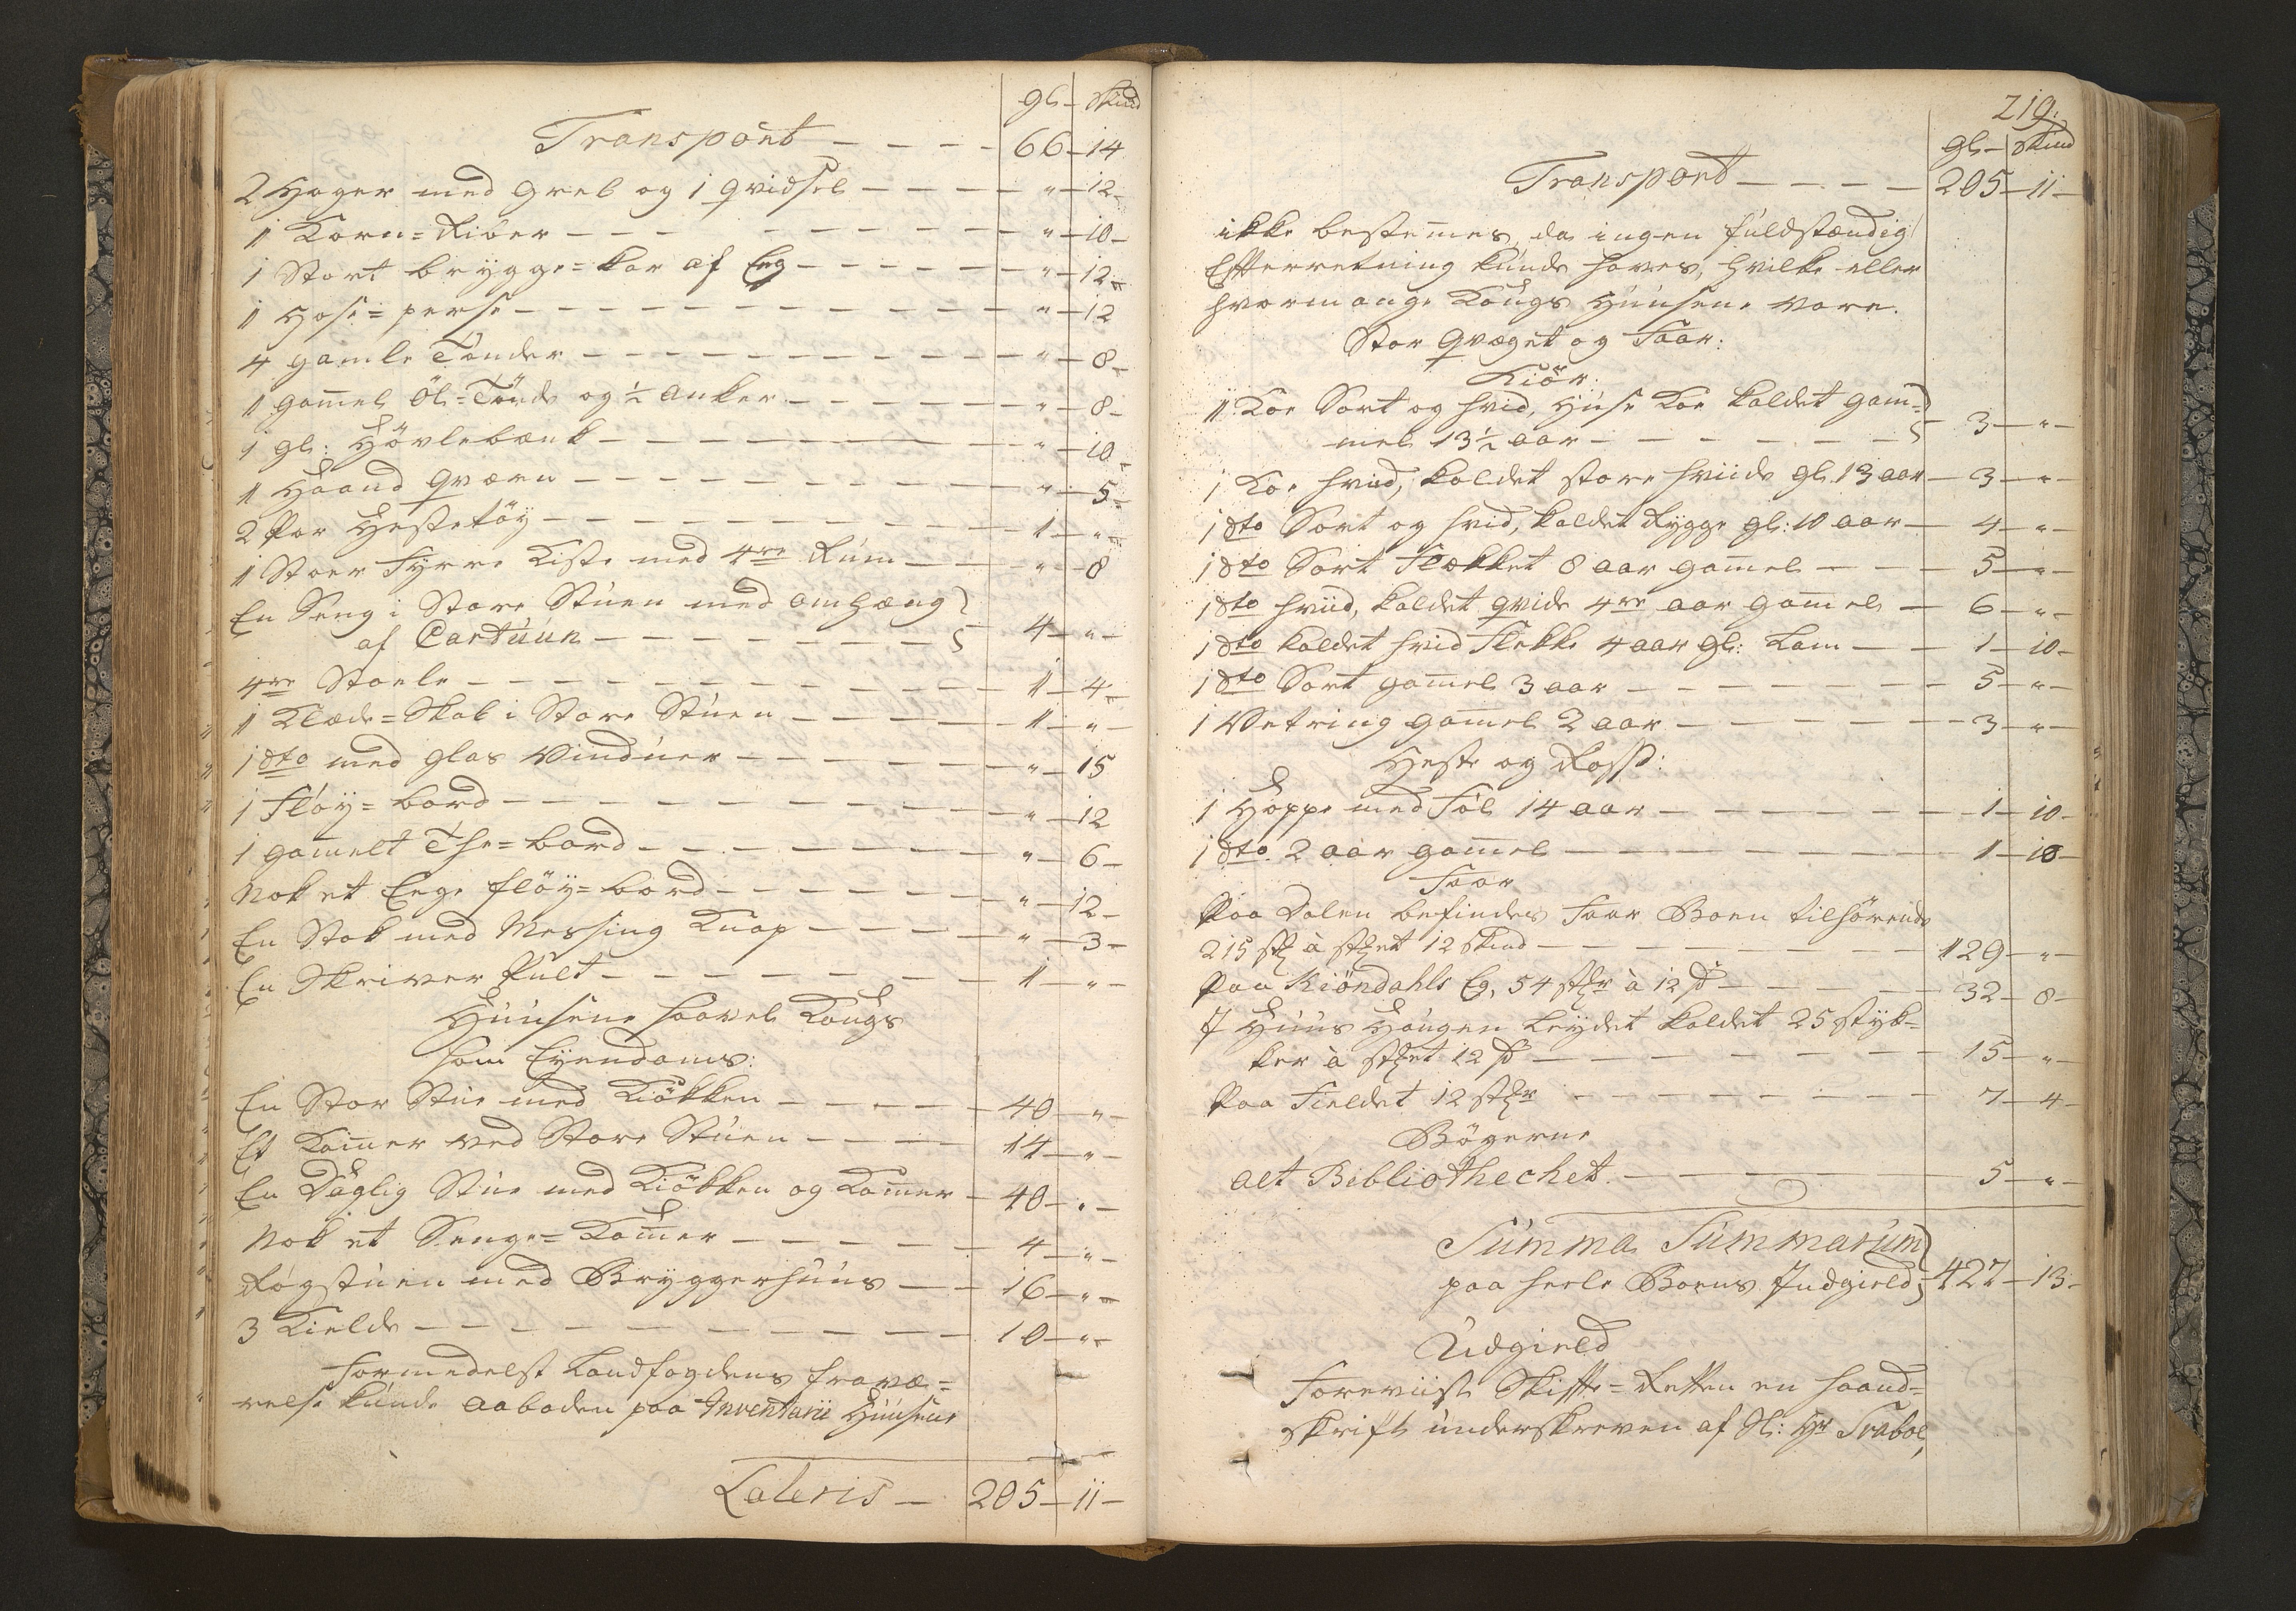 gl – Skind
Transport – – – – 66 – 14
2 Hager med Greb og 1 qvidsel – – – – " – 12 –
1 Korn=Riber – – – – – – – " – 10 –
1 Stort brygge=kar af Eeg – – – – – " – 12 –
1 Hose=perse – – – – – – – – " – 12
4 gamle Tönder – – – – – – – " – 8 –
1 gam̄el Öl=Tönde og ½ Anker – – – – – " – 8 –
1 gl: Hövlebænk – – – – – – – " – 10 –
1 Haand qværn – – – – – – – – " – 5 –
2 Par Hestetöy – – – – – – – – 1 – " –
1 Stoer Fyrre Kiste med 4re Rúm – – – " – 8
En Seng i Store Stúen med omhæng
af Cartúún – – – – – – – 4 – " –
4re Stoele – – – – – – – – – 1 – 4 –
1 Klæde=Skab i Store Stúen – – – – 1 – " –
1 dto med glas Vindúer – – – – – " – 15
1 Flöy=bord – – – – – – – – – " – 12
1 gam̄elt The=bord – – – – – – – " – 6 –
Nok et Eege flöy=bord – – – – – " – 12 –
En Stok med Messing Knap – – – – " – 3 –
En Skriver Pult – – – – – – – 1 – " –
Húúsene saavel Kongs
som Eyendoms:
En Stor Stúe med Kiökken – – – – – 40 – " –
Et Kam̄er ved Store Stúen – – – – 14 – " –
En Daglig Stúe med Kiökken og Kam̄er – 40 – " –
Nok et Senge=Kam̄er – – – – – 4 – " –
Rögstúen med Bryggerhúús – – 16 – " –
3 Kielde – – – – – – – – – 10 – " –
Formedelst Landfogdens fravæ=
relse kúnde Aaboden paa Inventarii Húúsene
Lateris – 205 – 11 –
219.
gl – Skind
Transport – – – – 205 – 11 –
ikke bestem̄es, da ingen fúldstændig
Efterretning kúnde haves, hvilke eller
hvormange Kongs Húúsene vare.
Stor qvæget og Faar:
Kiör:
1 Koe Sort og hvid, Húse Koe kaldet gam=
mel 13½ aar – – – – – – – 3 – " –
1 Koe hviid, kaldet store hviide gl. 13 aar – 3 – " –
1 dto Sort og hvid, kaldet Rygge gl: 10 aar – 4 – " –
1 dto Sort Flækket 8 aar gam̄el – – – 5 – " –
1 dto hviid, kaldet qvide 4re aar gam̄el – 6 – " –
1 dto kaldet hvid Flekke 4 aar gl: Lam – – 1 – 10 –
1 dto Sort gam̄el 3 aar – – – – – – 5 – " –
1 Vetring gam̄el 2 aar – – – – – – 3 – " –
Heste og Roß:
1 Hoppe med Föl 14 aar – – – – – – 1 – 10 –
1 dto 2 aar gam̄el – – – – – – – 1 – 10 –
Faar
Paa Dalen befindes Faar Boen tilhörende
215 st à st:et 12 Skind – – – – – – 129 – " –
Paa Kiöndahls Eg, 54 st:r à 12 ß – – – – 32 – 8 –
I Húús Haúgen leydet kaldet 25 styk=
ker à st:et 12 ß – – – – – – – 15 – " –
Paa Fieldet 12 st:r – – – – – – – 7 – 4 –
Bögerne
Alt Bibliothechet. – – – – – 5 – " –
Súmma Súmmarúm
paa heele Boens Indgield 427 – 13 –
Udgield
Foreviiste Skifte=Retten en haand=
skrift únderskreven af Sl: Hr